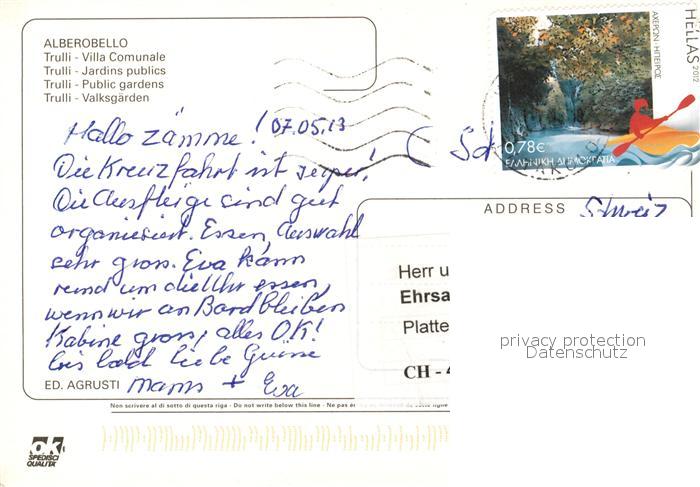 ALBEROBELLO
Trulli - Villa Comunale
Trulli - Jardins publics
Trulli - Public gardens
Trulli - Valksgärden
Hallo zämme! 07.05.13
Die Kreuzfahrt ist super!
Die Ausflüge sind gut
organisiert. Essen, Auswahl
sehr gross. Eva kann
rund um die Uhr essen,
wenn wir an Bord bleiben
Kabine gross, alles OK!
bis bald liebe Grüsse
+ Eva
ED. AGRUSTI
Non scrivere al di sotto di questa riga - Do not write below this line - Ne pas
OK
SPEDISCI
QUALITÀ
HELLAS 2012
ΑΧΕΡΩΝ - ΗΠΕΙΡΟΣ
0,78€
ΕΛΛΗΝΙΚΗ ΔΗΜΟΚΡΑΤΙΑ
ADDRESS
Schweiz
Herr u
Ehrsa
Platte
CH - 4
privacy protection
Datenschutz